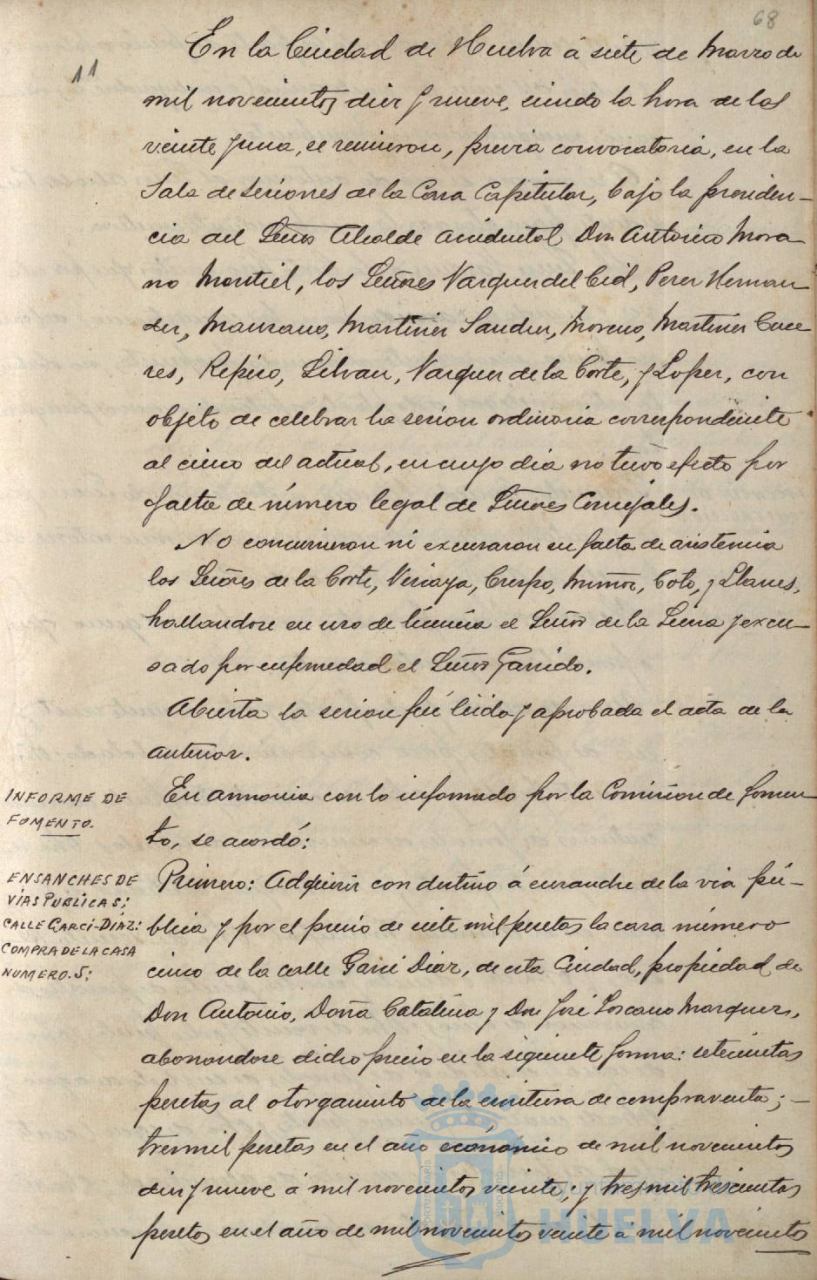 68
11
En la Ciudad de Huelva á siete de Marzo de
mil novecientos diez y nueve, siendo la hora de las
veinte y una, se reunieron, previa convocatoria, en la
Sala de sesiones de la Casa Capitular, bajo la presiden-
cia del Señor Alcalde accidental Don Antonio Mora-
no Montiel, los Señores Vazquez del Cid, Perez Hernan-
dez, Manzano, Martinez Sanchez, Moreno, Martinez Cace-
res, Repiso, Silvan, Vazquez de la Corte, y Lopez, con
objeto de celebrar la sesion ordinaria correspondiente
al cinco del actual, en cuyo dia no tuvo efecto por
falta de número legal de Señores Concejales.
No concurrieron ni excusaron su falta de asistencia
los Señores de la Corte, Vizcaya, Crespo, Muñoz, Coto, y Llanes,
hallandose en uso de licencia el Señor de la y excu-
sado por enfermedad el Señor Garrido.
Abierta la sesion fué leida y aprobada el acta de la
anterior.
INFORME DE
FOMENTO.
En armonia con lo informado por la Comision de Fomen-
to, se acordó:
ENSANCHES DE
VÍAS PUBLICAS;
CALLE GARCI-DÍAZ:
COMPRA DE LA CASA
NUMERO. 5;
Primero: Adquirir con destino á ensanche de la via pú-
blica y por el precio de siete mil pesetas la casa número
cinco de la calle Garci Diaz, de esta Ciudad, propiedad de
Don Antonio, Doña Catalina y Don José Toscano Marquez,
abonandose dicho precio en la siguiente forma: setecientas
pesetas al otorgamiento de la escritura de compraventa; -
tres mil pesetas en el año económico de mil novecientos
diez y nueve á mil novecientos veinte; y tres mil trescientas
pesetas en el año de mil novecientos veinte á mil novecientos
HUELVA